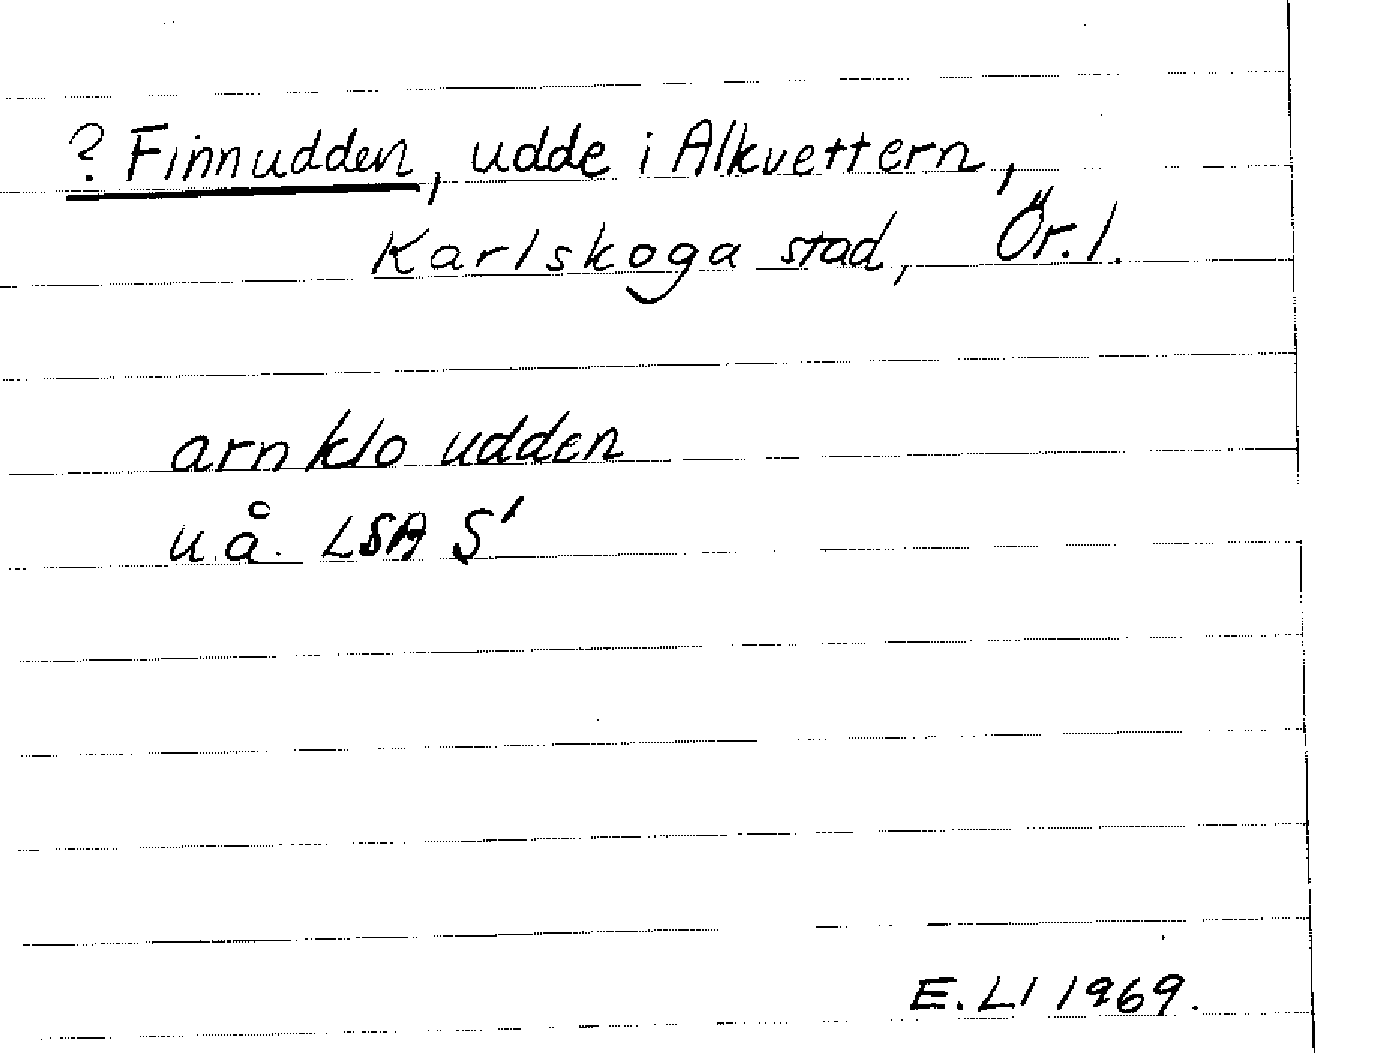 ? Finnudden, udde i Alkvettern,
Karlskoga stad, Ör. l.
arnklo udden
u.å. LSA S'
E. LI 1969.